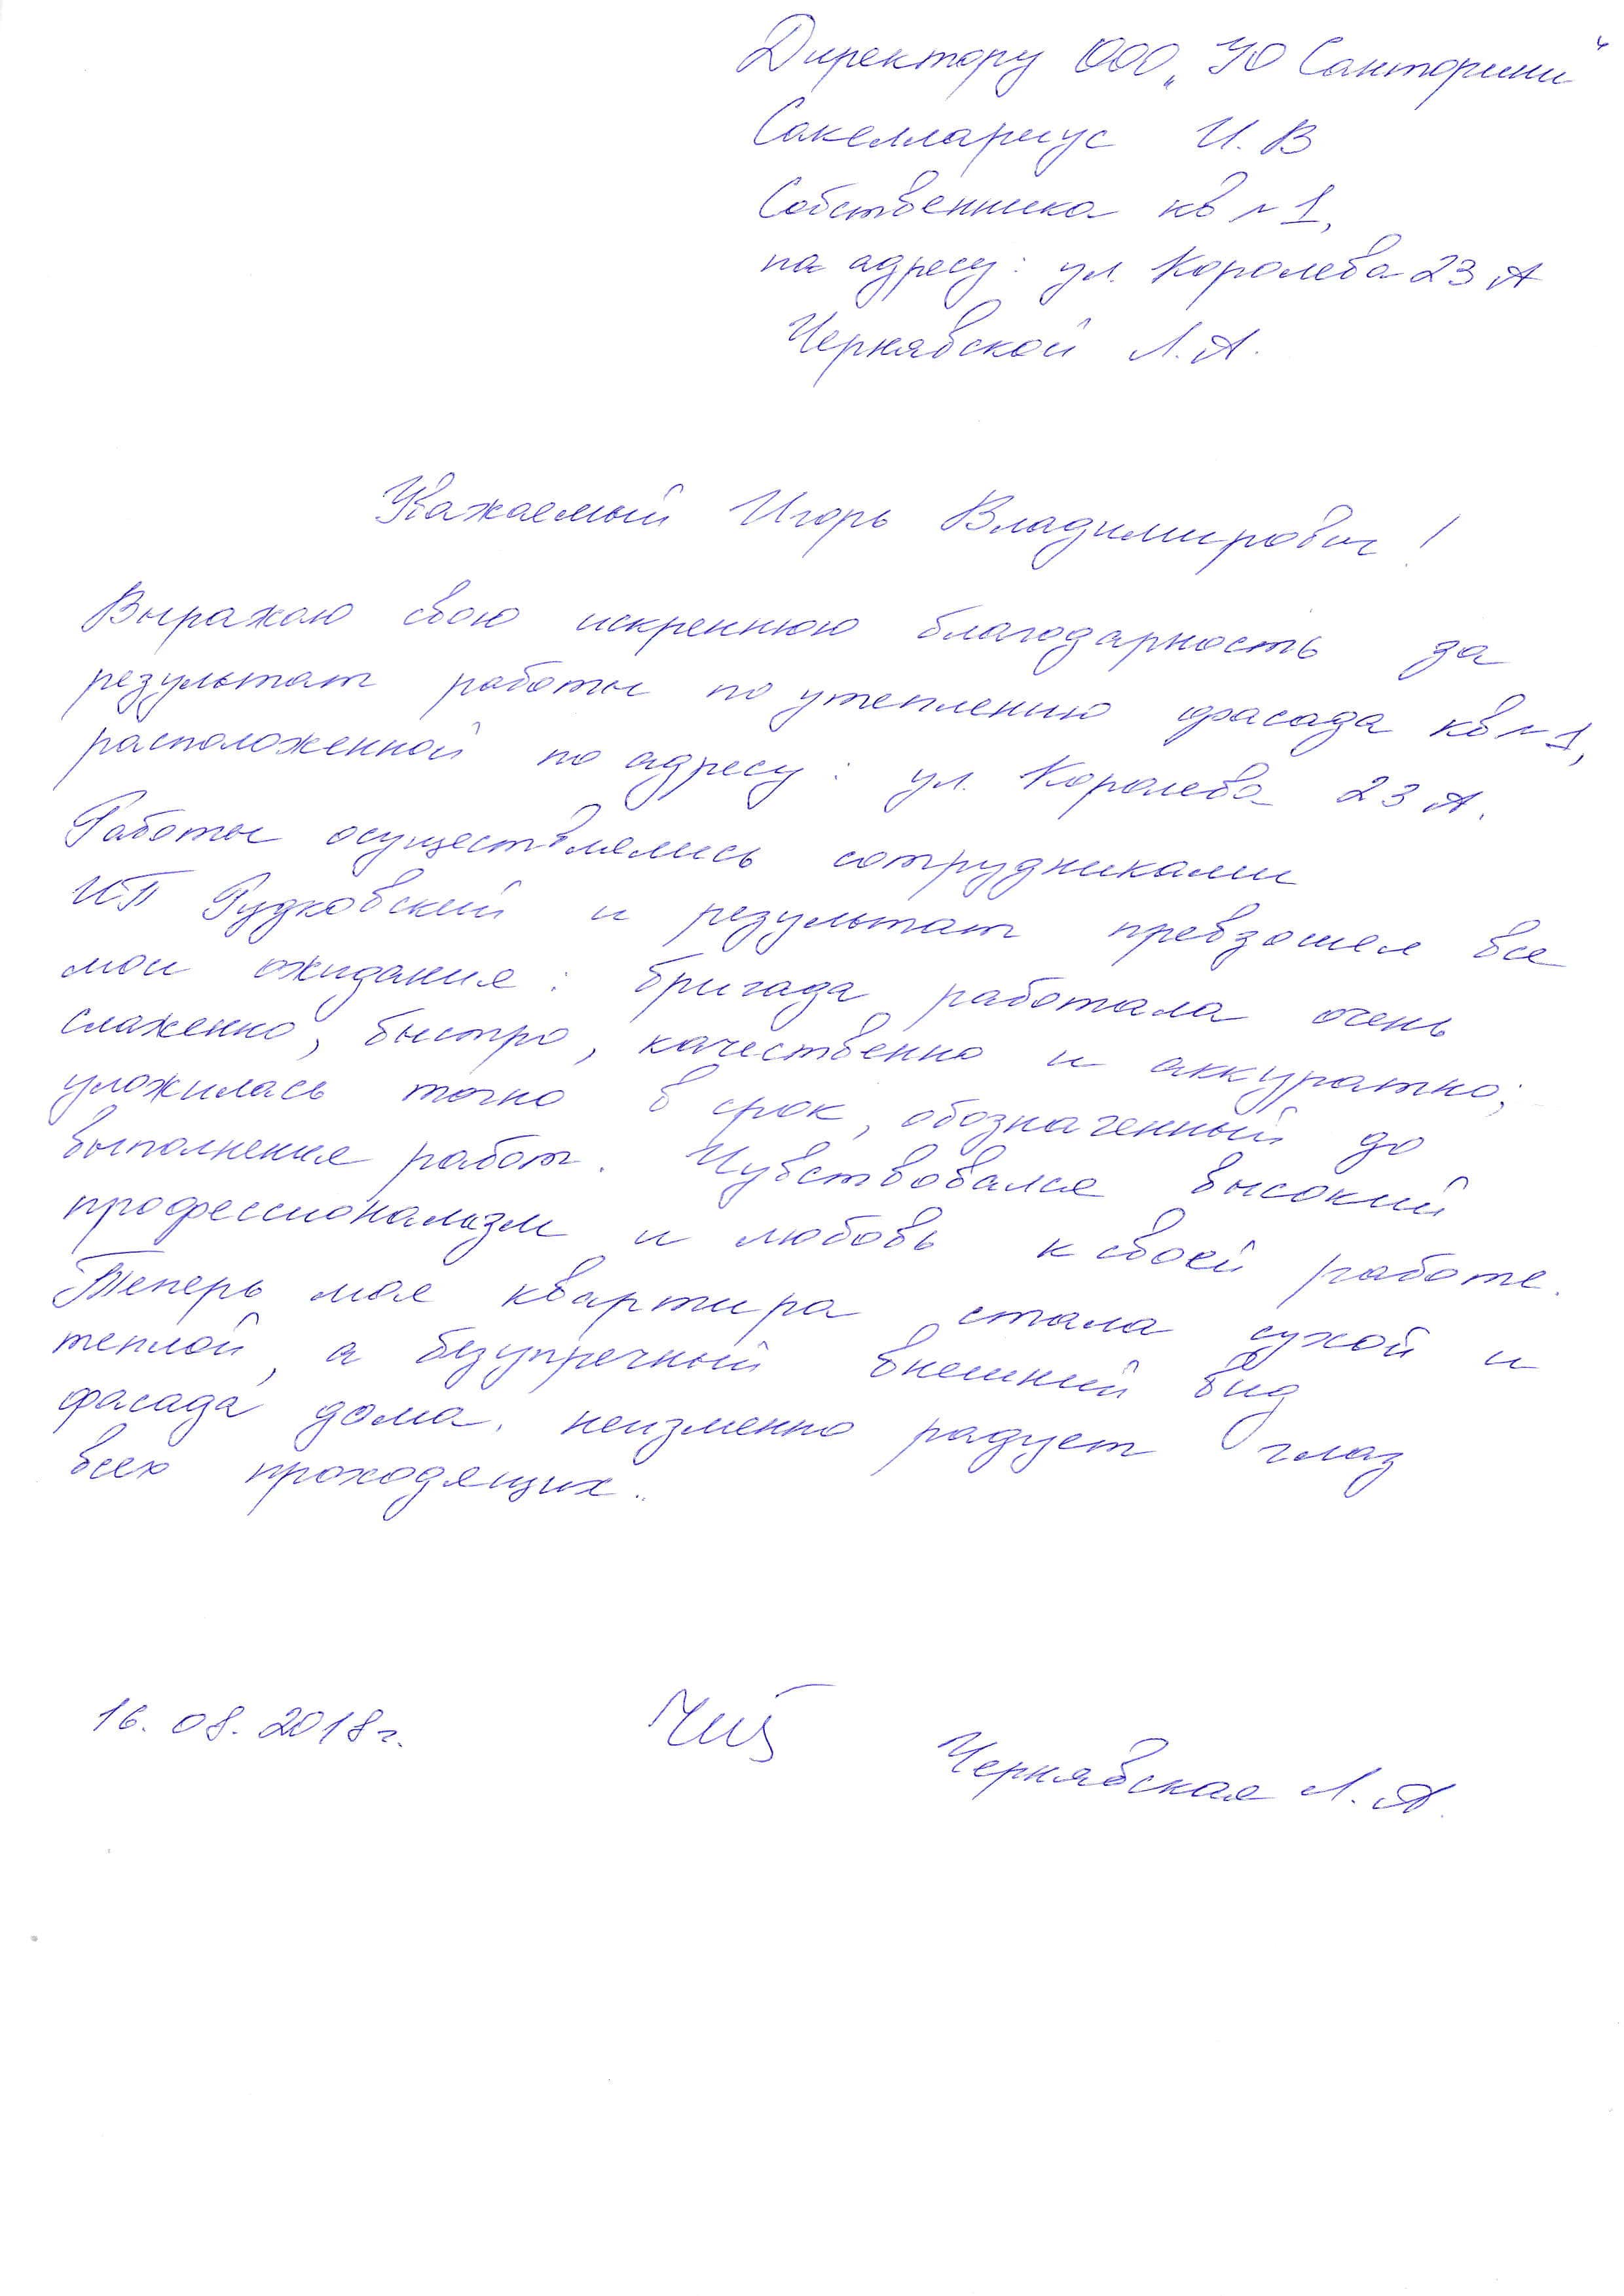 Директору ООО „УО Санторини“
Сакеллариус И. В
Собственника кв № 1,
па адресу: ул. Королева 23 А
Чернявской Л. А.
Уважаемый Игорь Владимирович!
Выражаю свою искреннюю благодарность за
результат работы по утеплению фасада кв № 1,
расположенной по адресу: ул. Королева 23 А.
Работы осуществлялись сотрудниками
ИП Рудковский и результат превзошел все
мои ожидания: бригада работала очень
слаженно, быстро, качественно и аккуратно;
уложилась точно в срок, обозначенный до
выполнения работ. Чувствовался высокий
профессионализм и любовь к своей работе.
Теперь моя квартира стала сухой и
теплой, а безупречный внешний вид
фасада дома. неизменно радует глаз
всех проходящих.
16. 08. 2018г.
Чернявская Л. А.